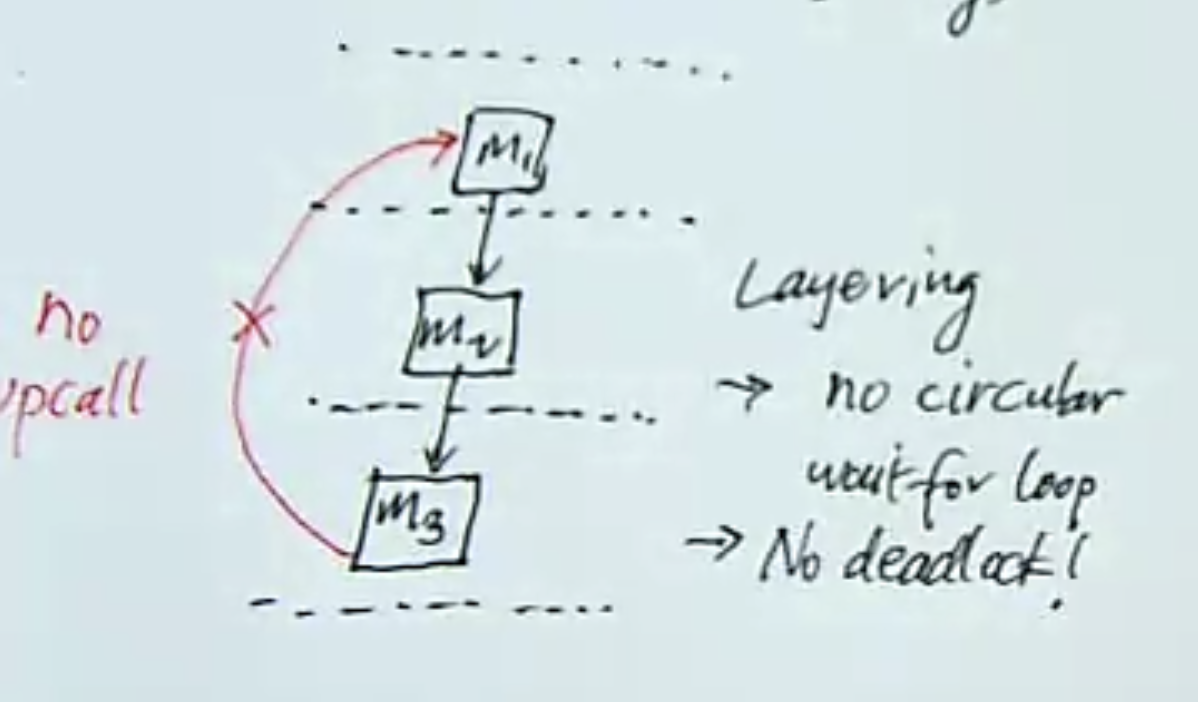 M1
M2
M3
no
upcall
Layering
→ no circular
wait-for loop
→ No deadlock!